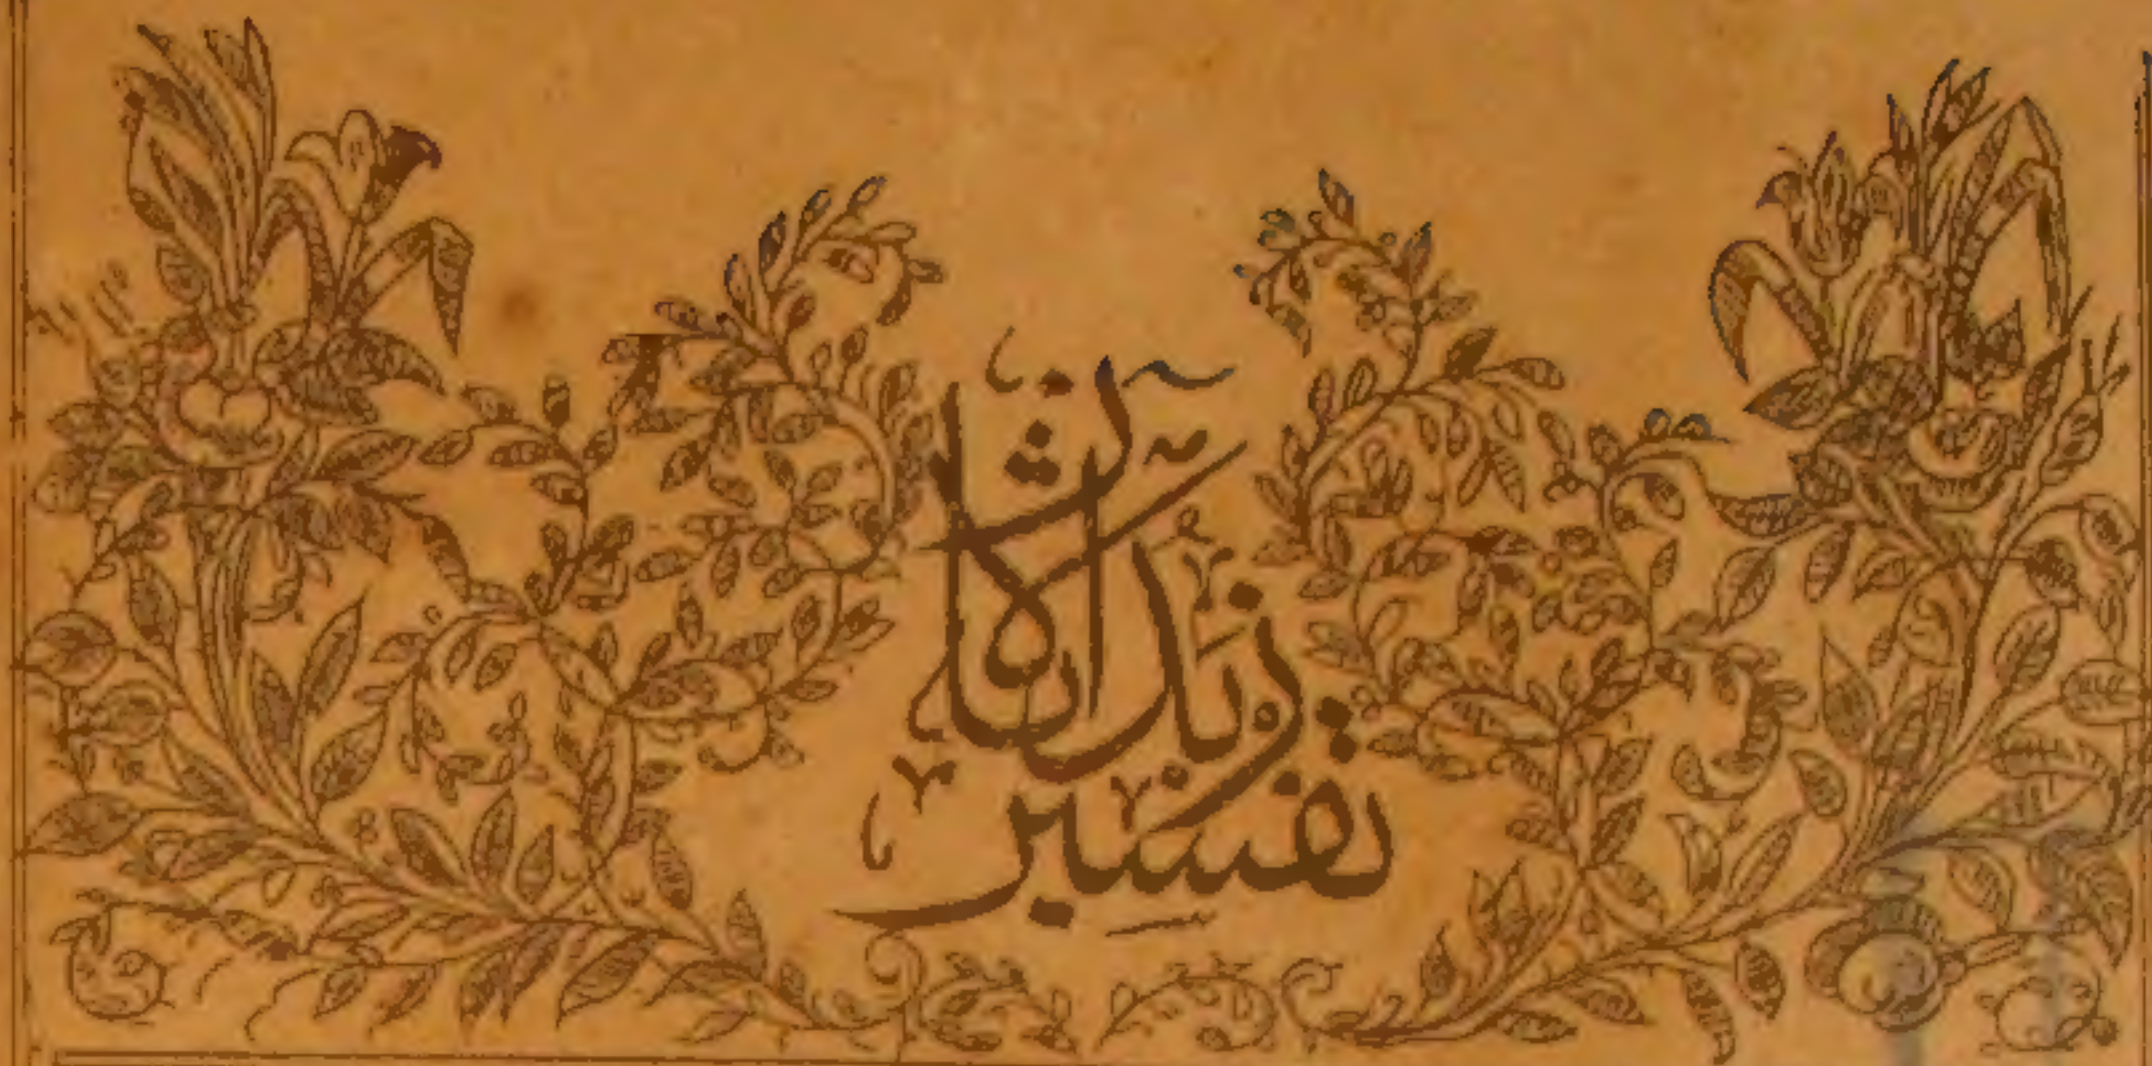 تفسير
زبدة الآثار